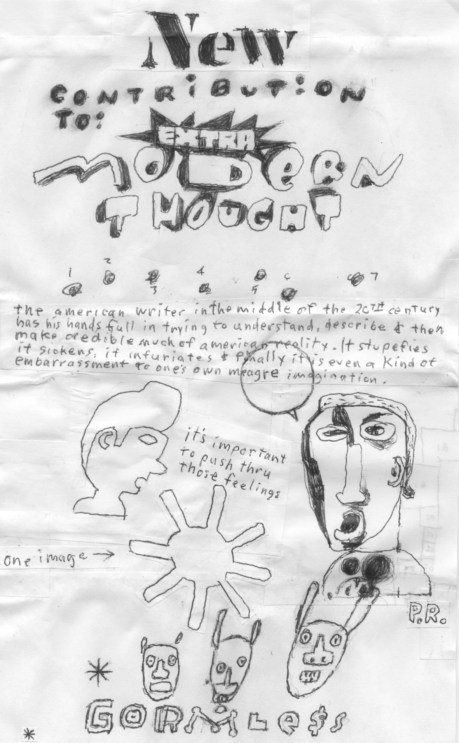 New
CONTRiBUTiON
TO:
EXTRA
MODERN
THOUGHT
1 2 3 4 5 6 7
the american writer in the middle of the 20th century
has his hands full in trying to understand, describe & then
make credible much of american reality. It stupefies
it sickens, it infuriates & finally it is even a kind of
embarrassment to one's own meagre imagination.
it's important
to push thru
those feelings
one image →
P.R.
* GORMLe$s
*